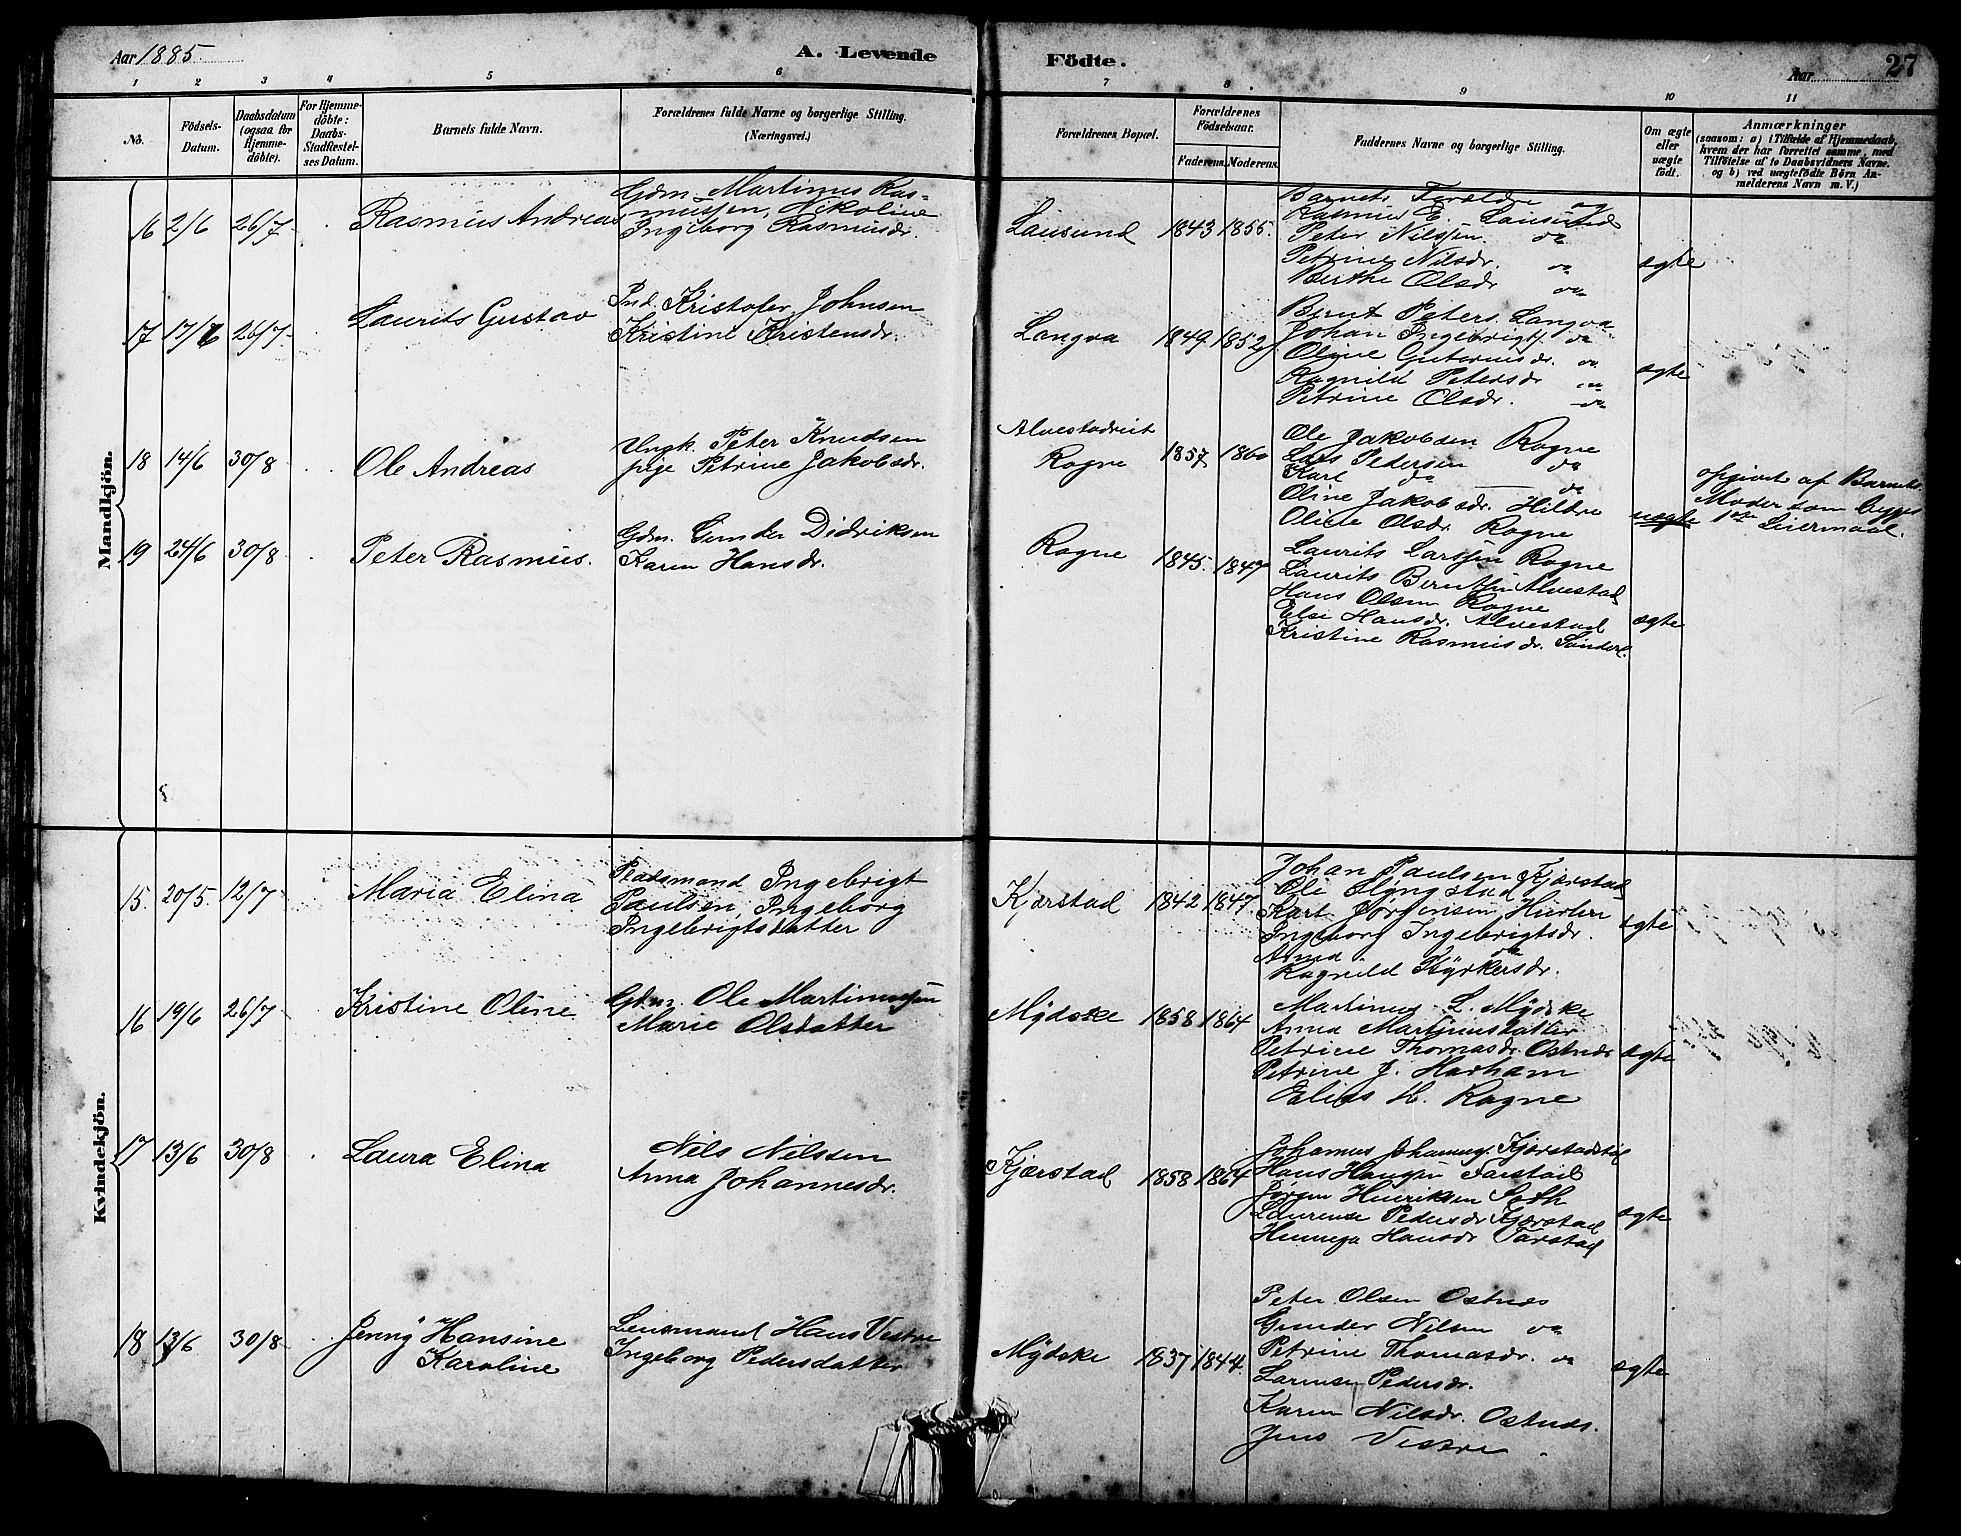 Aar 1885.
A. Levende
Födte.
Aar
27
1 2 3 4 5 6 7 8 9 10 11
No.
Födsels-
Datum.
Daabsdatum
(ogsaa for
Hjemme-
döbte).
For Hjemme-
döbte:
Daabs-
Stadfæstel-
ses Datum.
Barnets fulde Navn.
Forældrenes fulde Navne og borgerlige Stilling.
(Næringsvei.)
Forældrenes Bopæl.
Forældrenes
Födselsaar.
Faderens. Moderens.
Faddernes Navne og borgerlige Stilling.
Om ægte
eller
uægte
födt.
Anmærkninger
(saasom: a) i Tilfælde af Hjemmedaab,
hvem der har forrettet samme, med
Tilföielse af to Daabsvidners Navne.
og b) ved uægtefödte Börn An-
melderens Navn m. V.)
Mandkjön.
16 2/6 26/7 Rasmus Andreas
Gdm. Martinus Ras-
mussen, Nikoline
Ingeborg Rasmusdr.
Lausund 1843 1855.
Barnets Foreldre og
Rasmus E. Lausund
Peter Nilssen do
Petrine Nilsdr. do
Berthe Olsdr do
ægte
17 17/6 26/7 Laurits Gustav
Ind. Kristofer Johnsen
Kristine Kristensdr.
Longva 1849 1852
Bernt Peters. Longva
Johan Ingebrigts. do
Oline Guttormsdr. do
Ragnild Petersdr do
Petrine Olsdr. do
ægte
18 14/6 30/8 Ole Andreas
Ungk. Peter Knudsen
pige Petrine Jakobsdr.
Alvestadvict
Rogne 1857 1860
Ole Jakobsen Rogne
Lars Pedersen do
Karl do do
Oline Jakobsdr. Hildre
Oline Olsdr. Rogne
uægte
opgivet af Barnets
Moder som begges
1ste Leiermaal.
19 24/6 30/8 Peter Rasmus.
Gdm. Gunder Didriksen
Karen Hansdr.
Rogne 1845. 1847
Laurits Larssen Rogne
Laurits Berntsen Alvestad
Hans Olsen Rogne
Else Hansdr. Alvestad
Kristine Rasmusdr.
ægte
Kvindekjön.
15. 20/5 12/7 Maria Elina
Pladsmand Ingebrigt
Paulsen, Ingeborg
Ingebrigtsdatter
Kjærstad 1842 1847.
Johan Paulsen Kjærstad
Ole Slyngstad
Karl Jørgensen
Ingeborg Ingebrigtsdr.
Anna do
Ragnild Styrkersdr.
ægte
16 19/6 26/7 Kristine Oline
Gdm. Ole Martinussen
Marie Olsdatter
Mydske 1858 1864
Martinus L. Mydske
Anna Martinusdatter
Petrine Thomasdr. Ostnæs
Petrine J. Harham
Elias H. Rogne
ægte
17 13/6 30/8 Laura Elina
Nils Nilssen
Anna Johannesdr.
Kjærstad 1858 1864
Johannes Johannes.
Hans Hanssen Farstad
Jørgen Henriksen
Laurense Pedersdr Kjærstad
Hansdr Farstad
ægte
18 13/6 30/8 Jenny Hansine
Karoline
Lensmand Hans Vestre
Ingeborg Pedersdatter
Mydske 1837 1844.
Peter Olsen Ostnæs
Gunder Nilsen do
Petrine Thomasdr. do
Pedersdr.
Karen Nilsdr. Ostnæs.
Jens Vestre
ægte